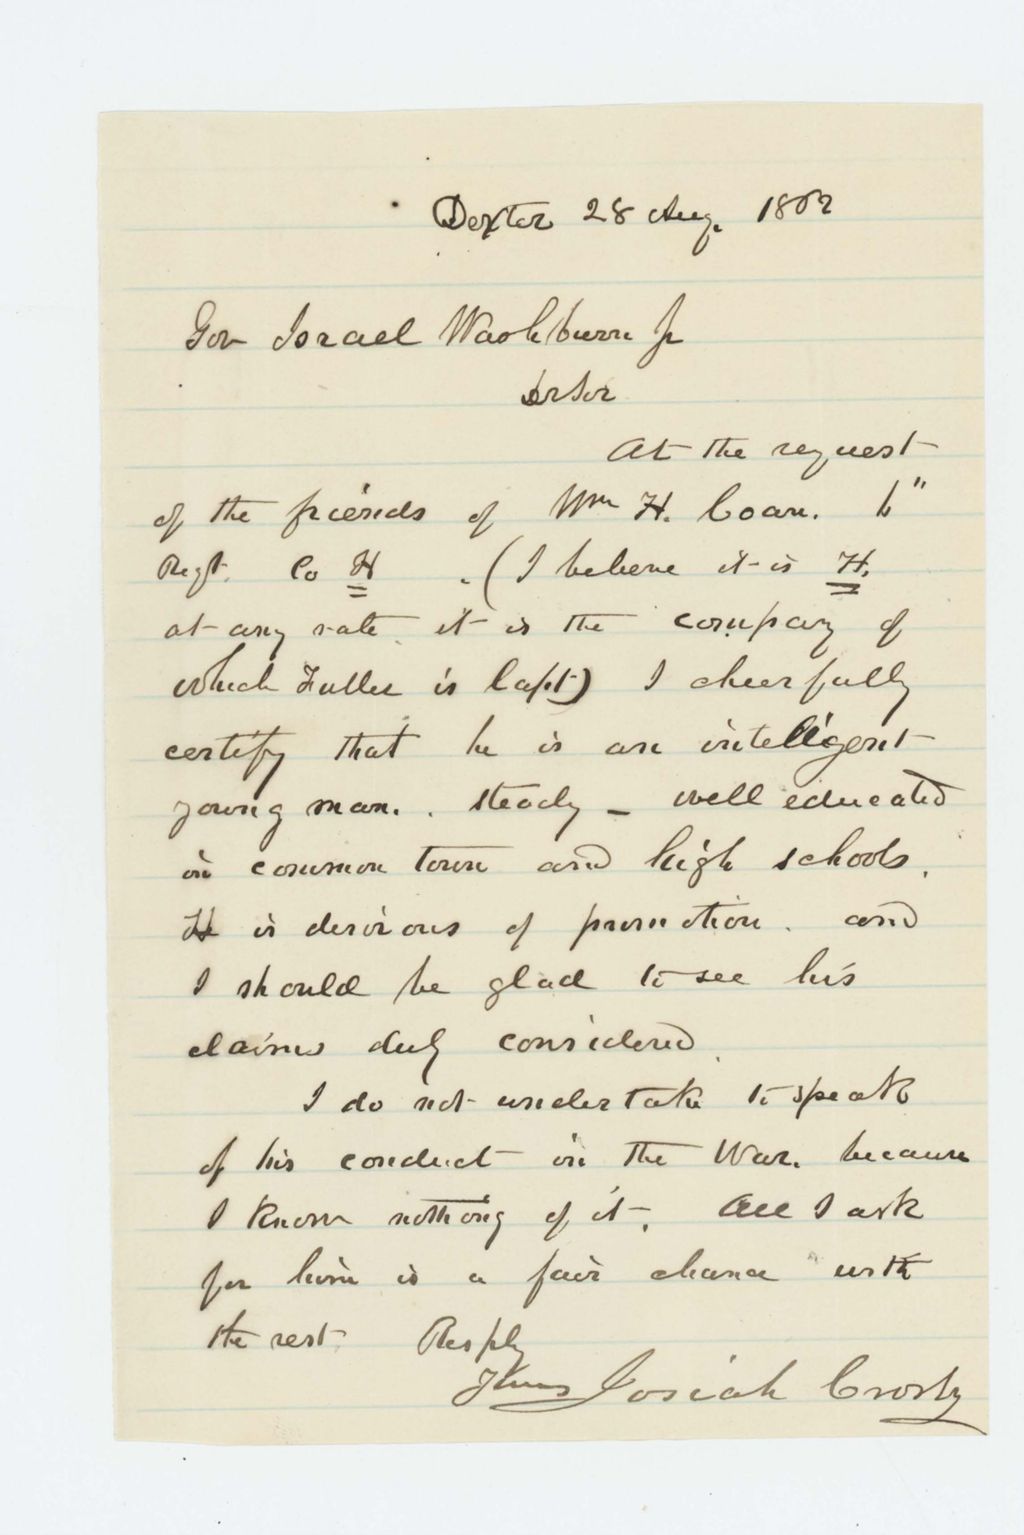 Dexter 28 Aug. 1862
Gov Israel Washburn Jr
Dr Sir
At the request
of the friends of Wm H. Coan. 6"
Regt. Co H . (I believe it is H.
at any rate it is the company of
which Fuller is Capt) I cheerfully
certify that he is an intelligent
young man. . steady _ well educated
in common town and high schools.
H is desirous of promotion. and
I should be glad to see his
claims duly considered.
I do not undertake to speak
of his conduct in the War. because
I know nothing of it. All I ask
for him is a fair chance with
the rest. Resply
Yours Josiah Crosby